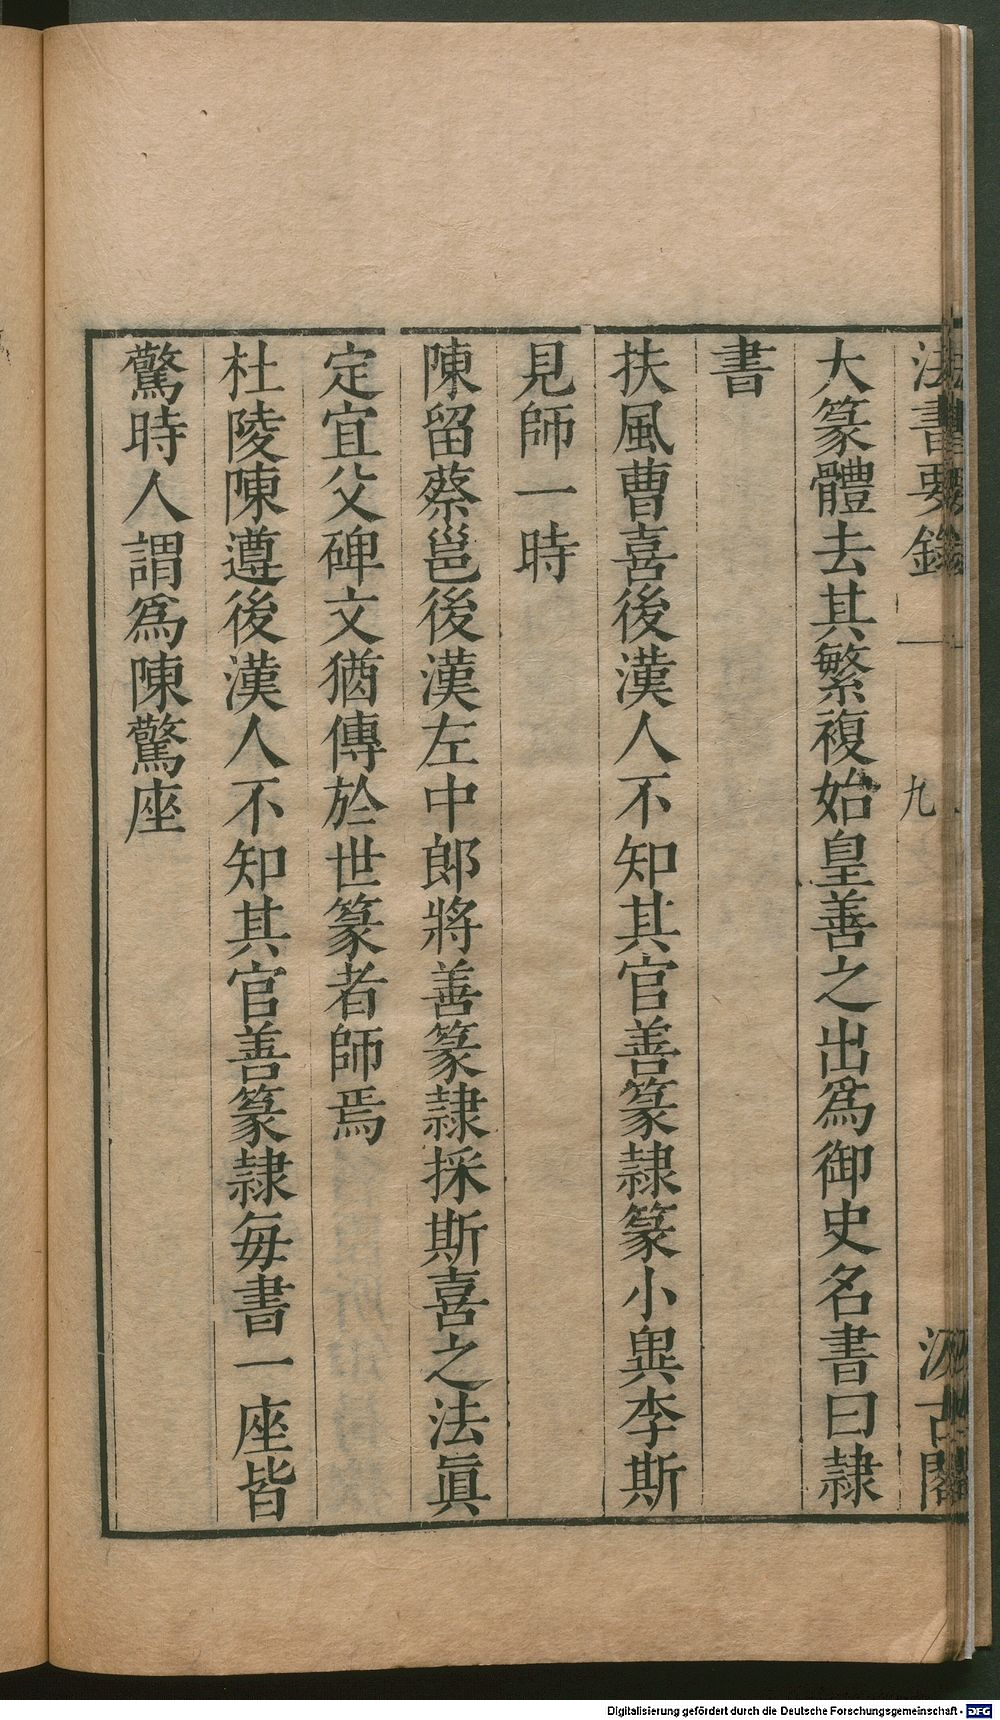 法書要錄 一 九 汲古閣
大篆體去其繁複始皇善之出爲御史名書曰隷
書
扶風曹喜後漢人不知其官善篆隷篆小異李斯
見師一時
陳留蔡邕後漢左中郎將善篆隷採斯喜之法眞
定宜父碑文猶傳於世篆者師焉
杜陵陳遵後漢人不知其官善篆隷每書一座皆
驚時人謂爲陳驚座
Digitalisierung gefördert durch die Deutsche Forschungsgemeinschaft - DFG